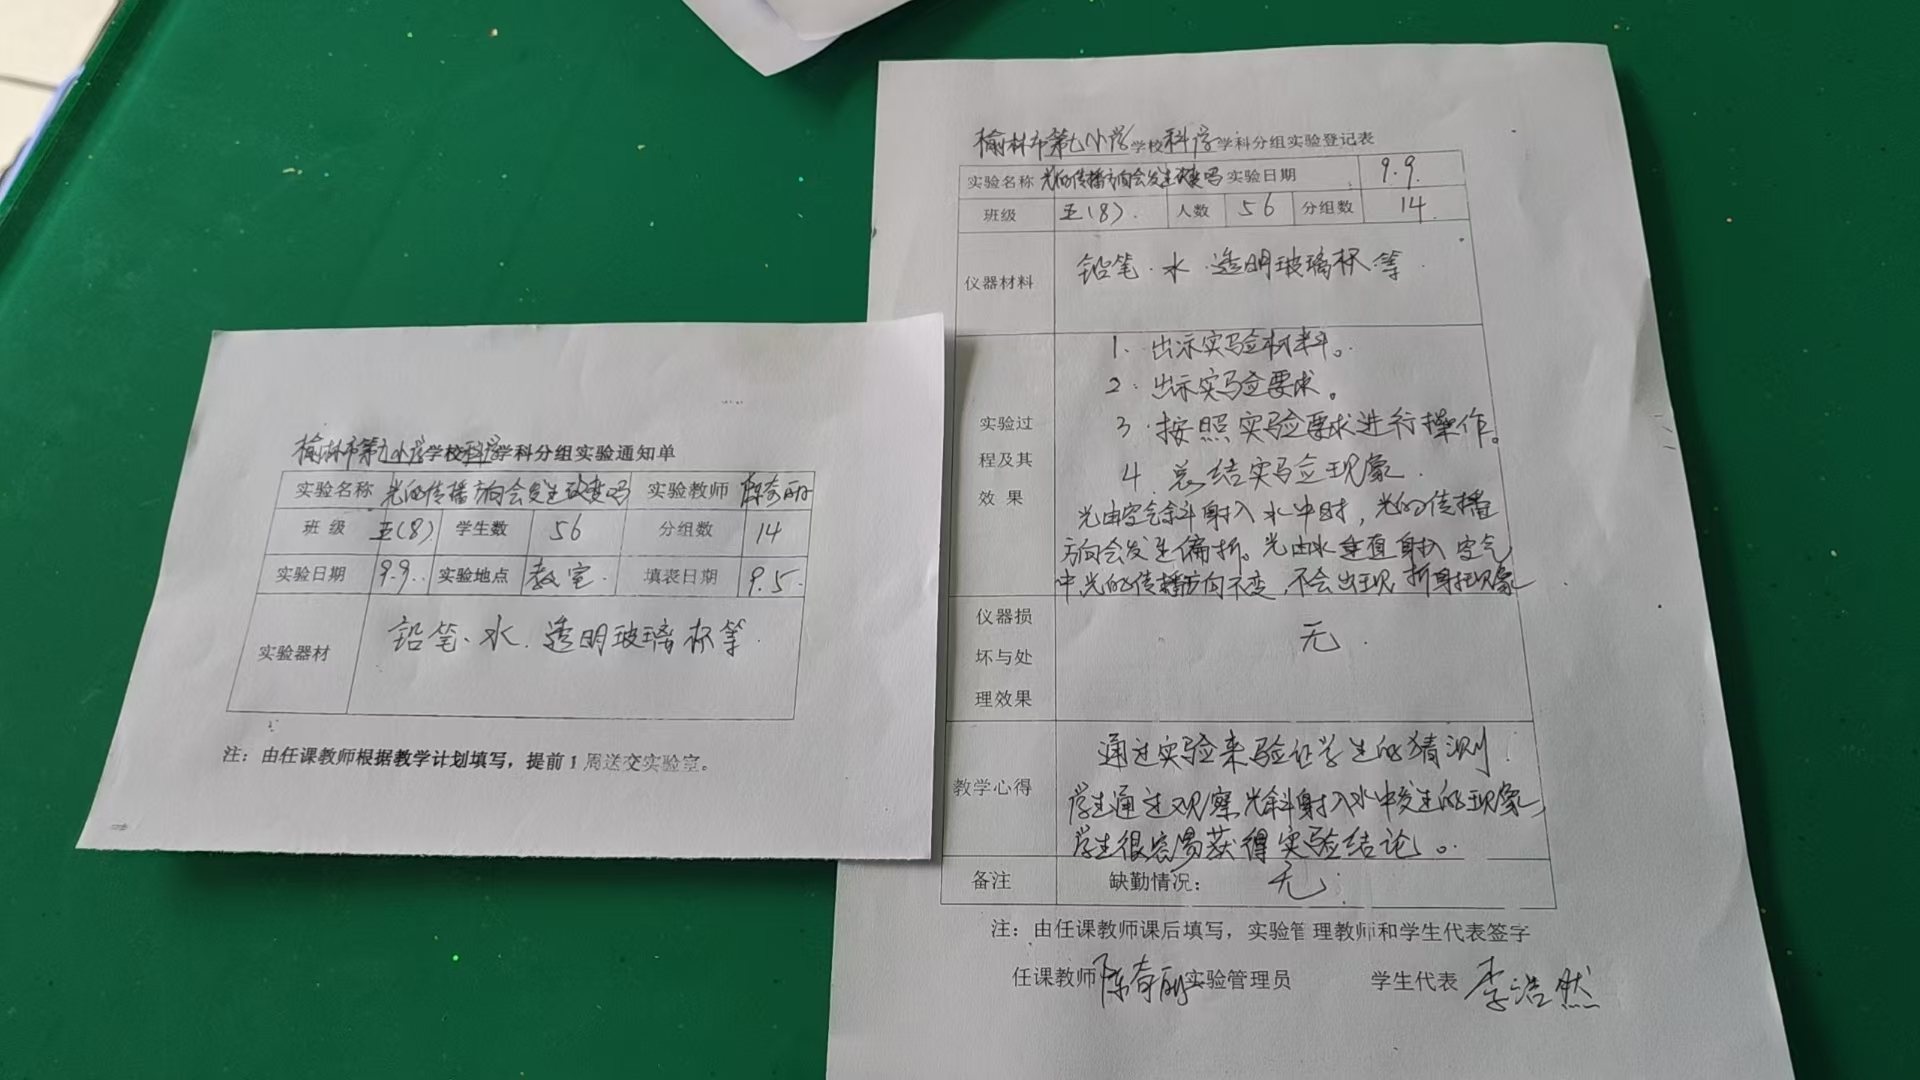 榆林市第九小学学校科学学科分组实验通知单
实验名称 光的传播方向会发生改变吗 实验教师 陈奇丽
班 级 五(8) 学生数 56 分组数 14
实验日期 9.9. 实验地点 教室. 填表日期 9.5.
实验器材 铅笔、水、透明玻璃杯等.
注：由任课教师根据教学计划填写，提前1周送交实验室。
榆林市第九小学学校科学学科分组实验登记表
实验名称 光的传播方向会发生改变吗 实验日期 9.9.
班级 五(8). 人数 56 分组数 14.
仪器材料 铅笔、水、透明玻璃杯等.
实验过
程及其
效 果
1. 出示实验材料。
2. 出示实验要求。
3. 按照实验要求进行操作。
4. 总结实验现象.
光由空气斜射入水中时，光的传播
方向会发生偏折。光由水垂直射入空气
中,光的传播方向不变,不会出现折射现象
仪器损
坏与处
理效果
无.
教学心得
通过实验来验证学生的猜测.
学生通过观察光斜射入水中发生的现象,
学生很容易获得实验结论。
备注 缺勤情况： 无.
注：由任课教师课后填写，实验管理教师和学生代表签字
任课教师 陈奇丽 实验管理员 学生代表 李浩然